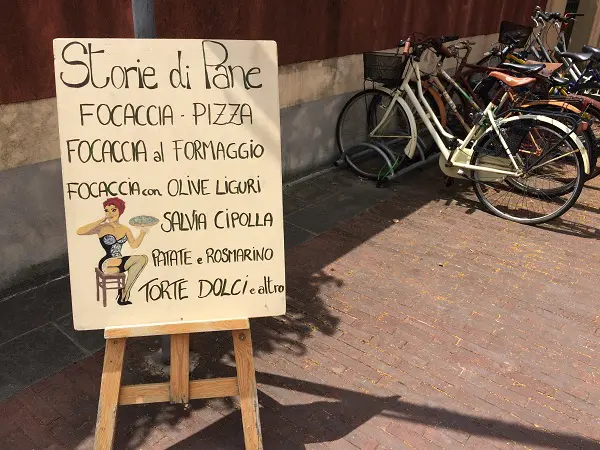 Storie di Pane
FOCACCIA - PIZZA
FOCACCIA al FORMAGGIO
FOCACCIA con OLIVE LIGURI
SALVIA CIPOLLA
PATATE e ROSMARINO
TORTE DOLCI e altro